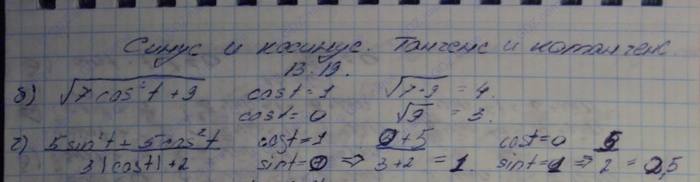 Синус и косинус. Тангенс и котангенс.
13.19.
б) √7cos²t + 9 cost=1 √7+9 = 4.
cost=0 √9 = 3.
г) 5sin²t + 5cos²t cost=1 0+5 cost=0 5
3|cost|+2 sint=0 => 3+2 = 1 sint=1 => 2 = 2,5